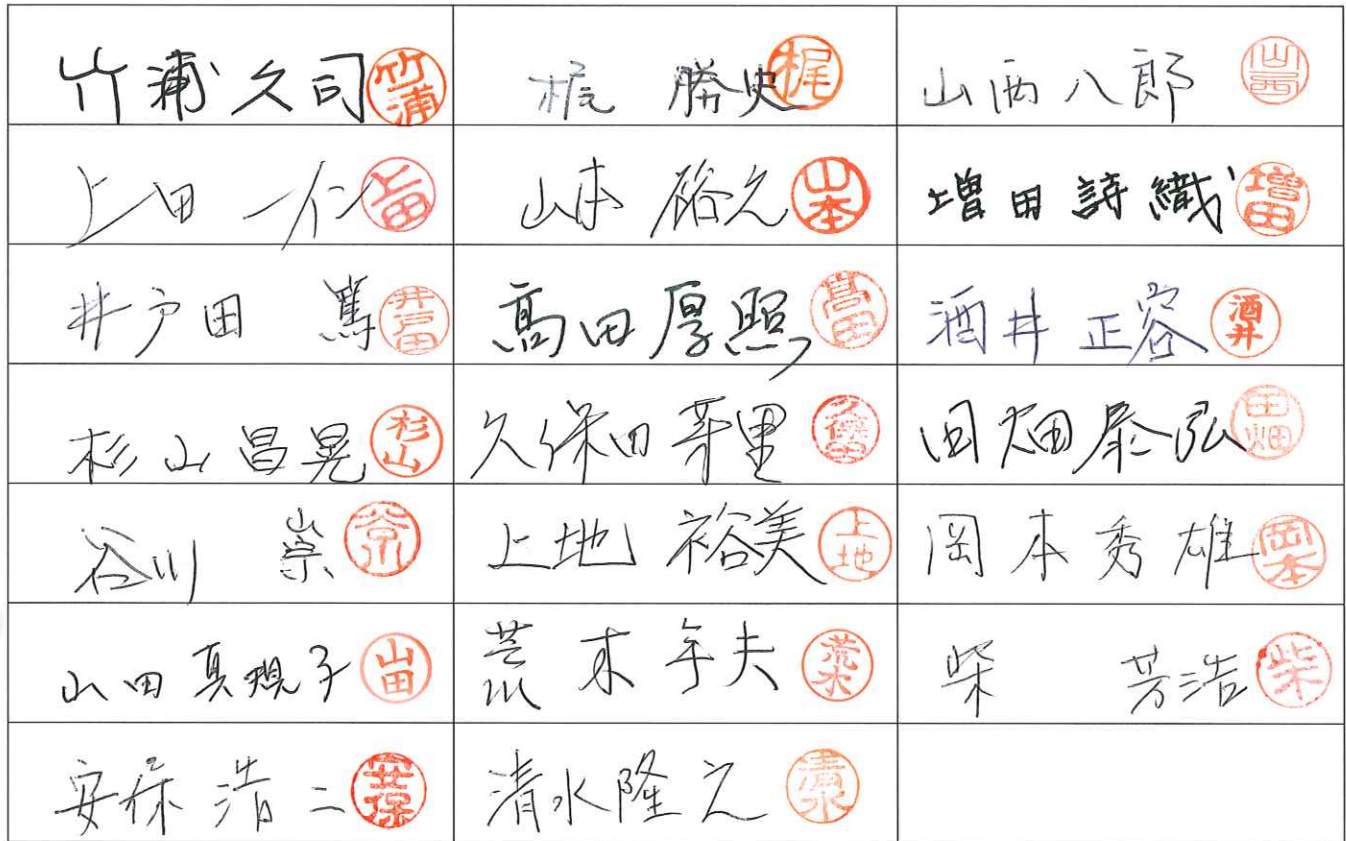 竹浦久司 竹浦 梶 勝史 梶 山西八郎 山西
上田 一仁 上田 山本 裕之 山本 増田詩織 増田
井戸田 篤 井戸田 髙田厚照 髙田 酒井 正容 酒井
杉山昌晃 杉山 久保田芽里 久保田 田畑泰弘 田畑
谷川 崇 谷川 上地 裕美 上地 岡本秀雄 岡本
山田真規子 山田 荒木年夫 荒木 柴 芳浩 柴
安保浩二 安保 清水隆之 清水